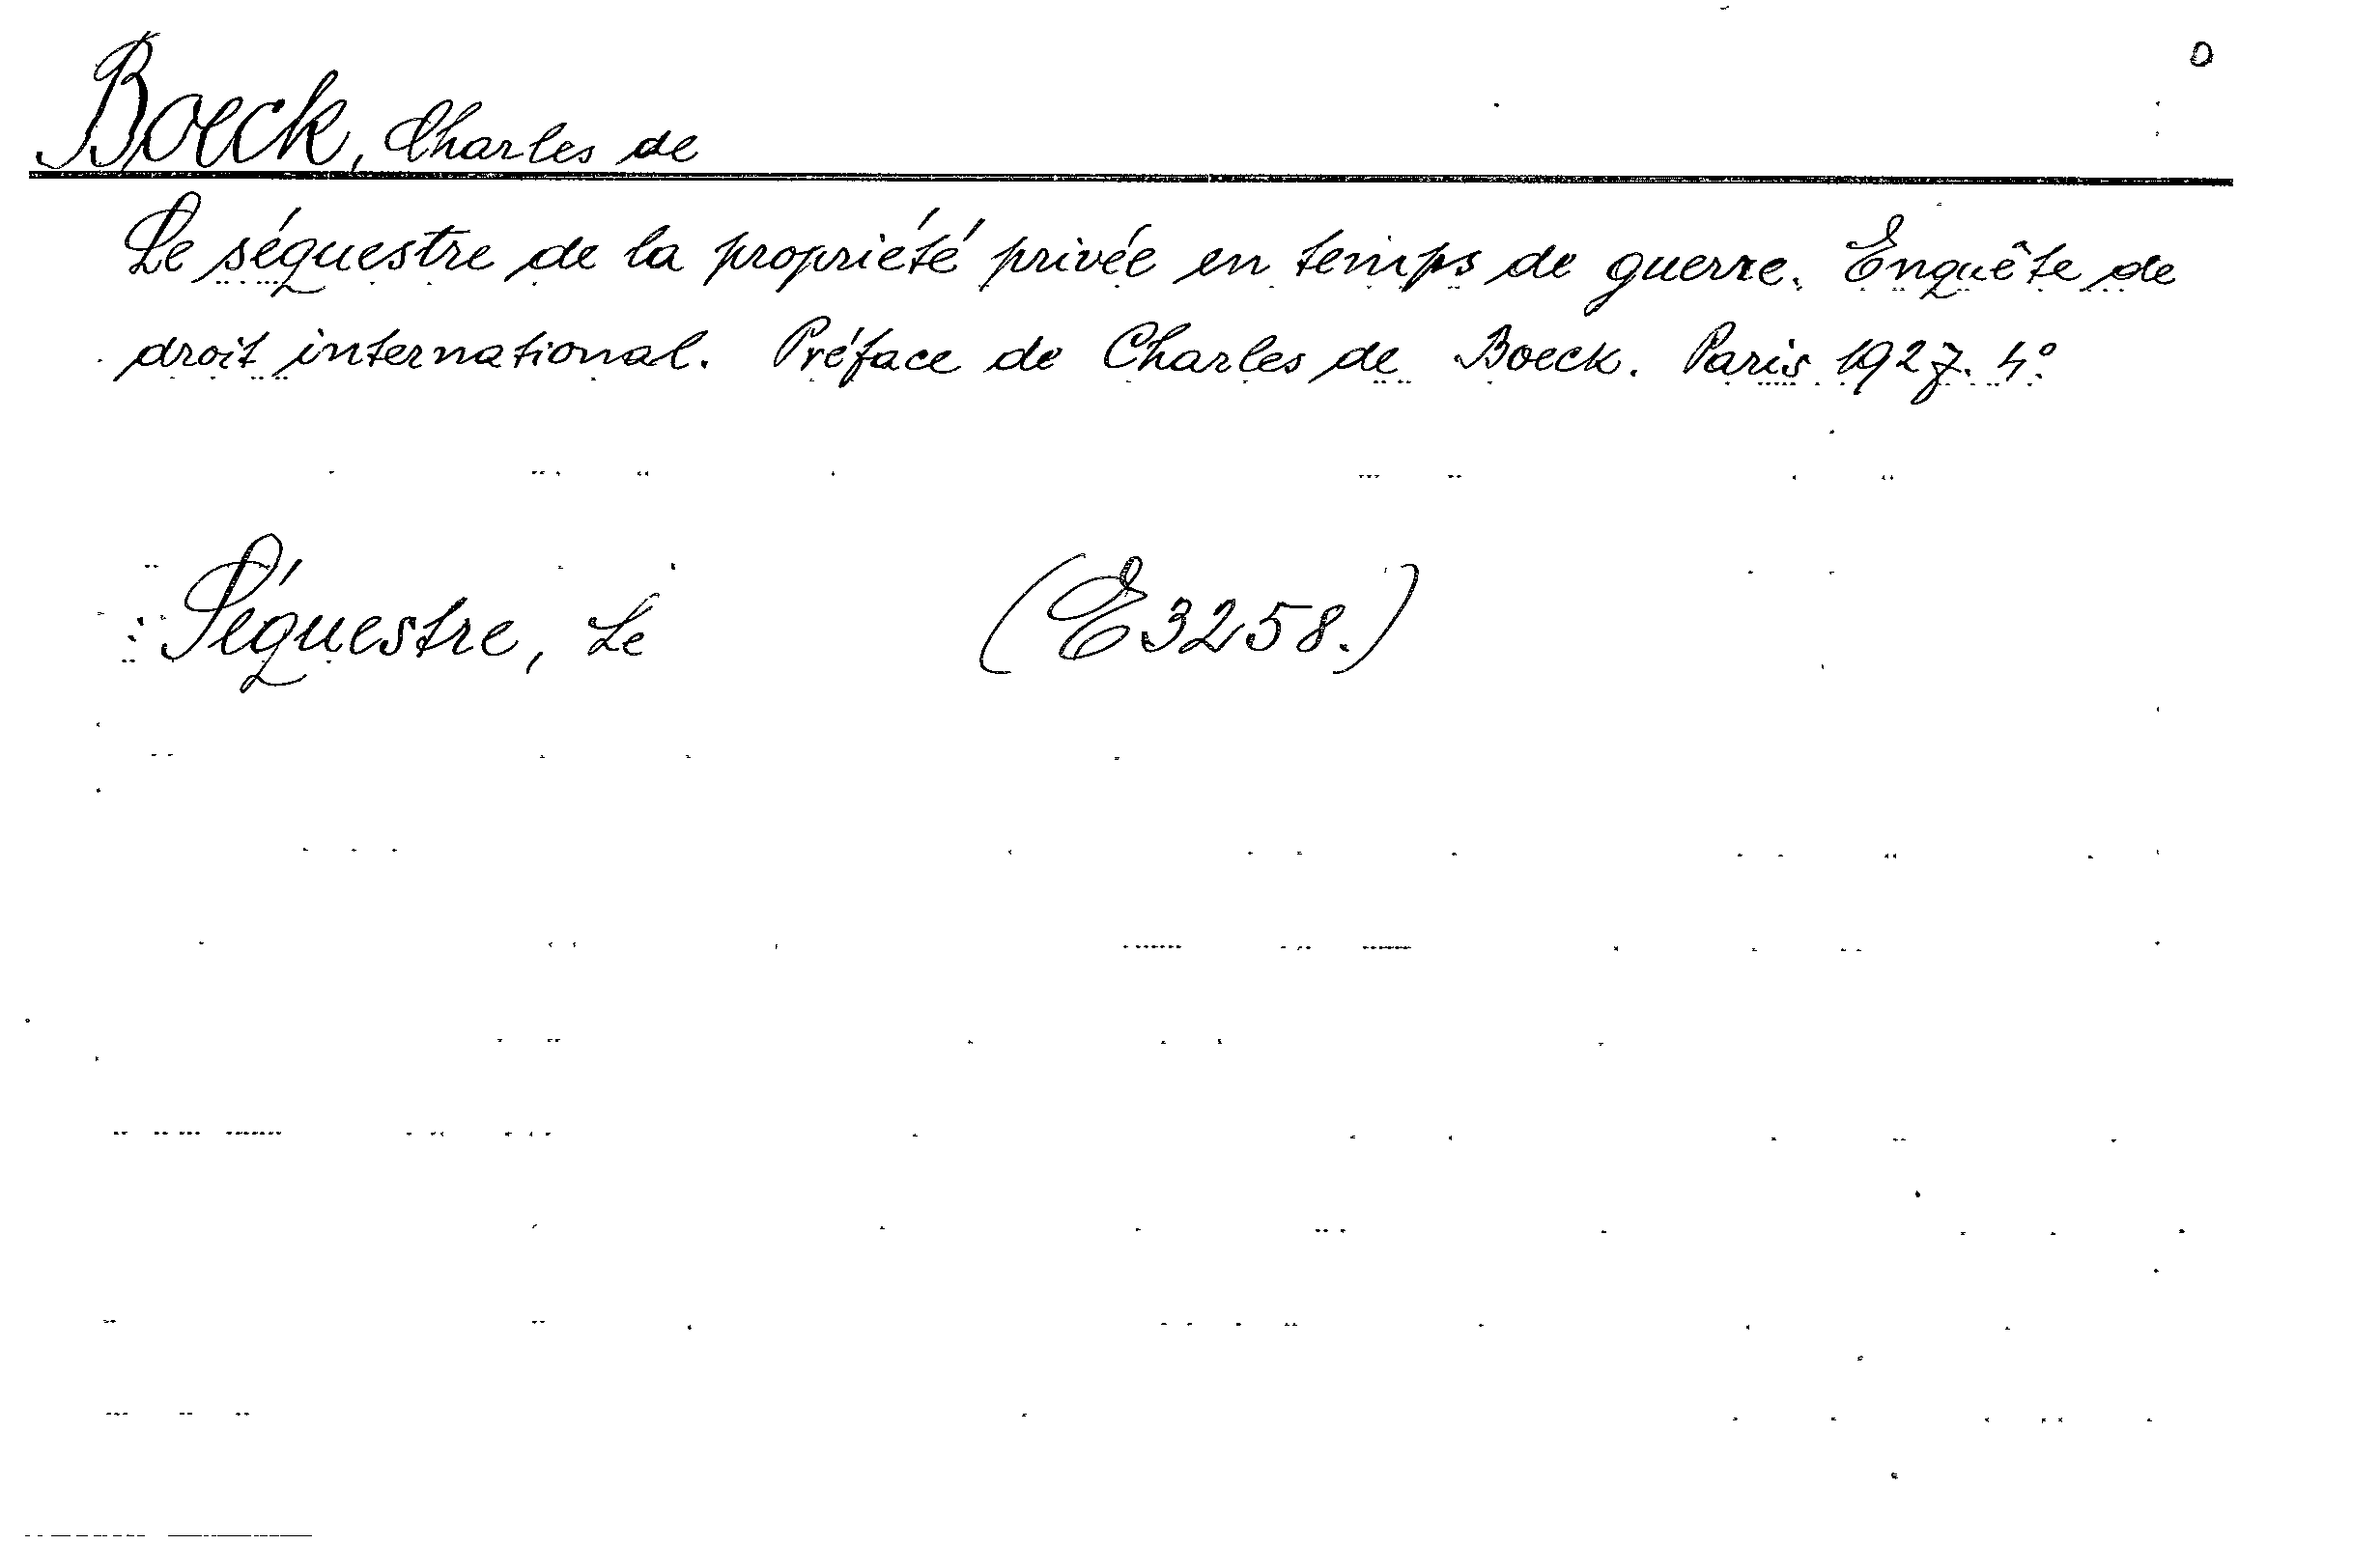 0
Boeck, Charles de
Le séquestre de la propriété privée en temps de guerre. Enquête de
droit international. Préface de Charles de Boeck. Paris 1927. 4°.
Séquestre, Le (E 3258.)